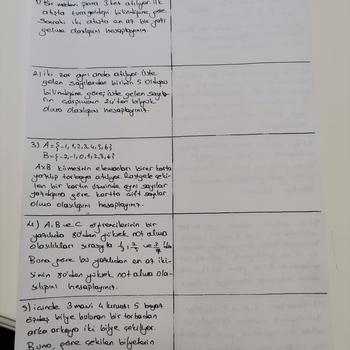 1) Bir madeni para 3 kez atılıyor. İlk
atışta tura geldiği bilindiğine göre
Sonraki iki atışta en az bir yazı
gelme olasılığını hesaplayınız.
2) iki zar aynı anda atılıyor. Üste
gelen sayılardan birinin 5 olduğu
bilindiğine göre; üste gelen sayıla-
rın çarpımının 20'den büyük
olma olasılığını hesaplayınız.
3) A={-1,1,2,3,4,5,6}
B={-2,-1,0,1,2,3,6}
AxB kümesinin elemanları birer karta
yazılıp torbaya atılıyor. Rastgele çeki-
len bir kartın üzerinde aynı sayılar
yazdığına göre kartta çift sayılar
olma olasılığını hesaplayınız.
4) A, B ve C öğrencilerinin bir
yazılıda 80'den yüksek not alma
olasılıkları sırasıyla
Buna göre bu yazılıdan en az iki-
sinin 80'den yüksek not alma ola-
sılığını hesaplayınız.
5) içinde 3 mavi 4 kırmızı 5 beyaz
özdeş bilye bulunan bir torbadan
arka arkaya iki bilye çekiliyor.
Buna göre çekilen bilyelerin